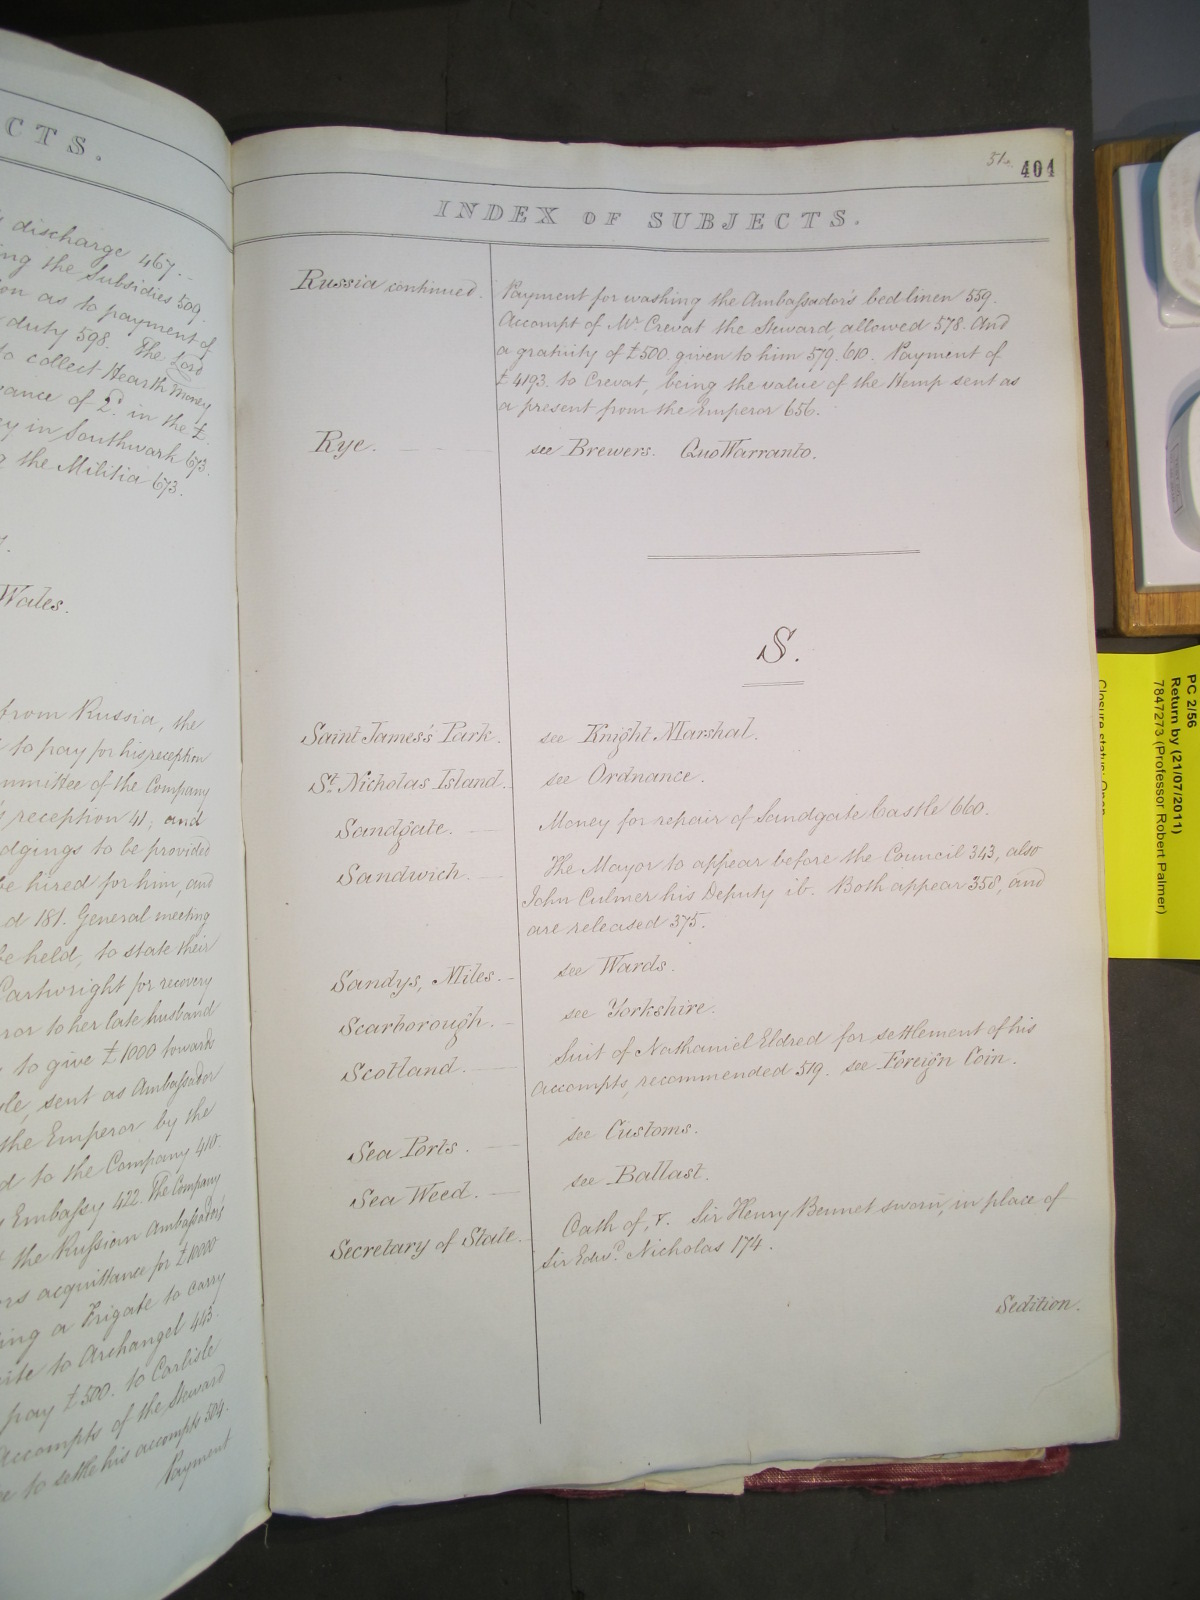 CTS.
discharge 467.
ing the Subsidies 509.
on as to payment of
duty 598. The Lord
to collect Hearth Money
ance of 2d. in the £.
ey in Southwark 673.
the Militia 673.
Wales.
from Russia, the
to pay for his reception
mmittee of the Company
reception 41; and
odgings to be provided
be hired for him, and
d 181. General meeting
be held, to state their
Cartwright for recovery
ror to her late husband
to give £1000 towards
le, sent as Ambassador
the Emperor by the
d to the Company 410.
Embassy 422. The Company
the Russian Ambassadors
ors acquittance for £1000
ing a Frigate to carry
ite to Archangel 443.
pay £500. to Carlisle
Accompts of the Steward
to settle his accompts 504.
Payment
51.
404
INDEX OF SUBJECTS.
Russia continued. Payment for washing the Ambassador's bed linen 559.
Accompt of Mr. Crevat the Steward, allowed 578. And
a gratuity of £500. given to him 579. 610. Payment of
£4193. to Crevat, being the value of the Hemp sent as
a present from the Emperor 656.
Rye. see Brewers. Quo Warranto.
S.
Saint James's Park. see Knight Marshal.
St. Nicholas Island. see Ordnance.
Sandgate. Money for repair of Sandgate Castle 660.
Sandwich. The Mayor to appear before the Council 343, also
John Culmer his Deputy ib. Both appear 358, and
are released 375.
Sandys, Miles. see Wards.
Scarborough. see Yorkshire.
Scotland. Suit of Nathaniel Eldred for settlement of his
Accompts, recommended 519. see Foreign Coin.
Sea Ports. see Customs.
Sea Weed. see Ballast.
Secretary of State. Oath of, v. Sir Henry Bennet sworn, in place of
Sir Edwd. Nicholas 174.
Sedition.
PC 2/56
Return by (21/07/2011)
7847273 (Professor Robert Palmer)
Closure status: Open